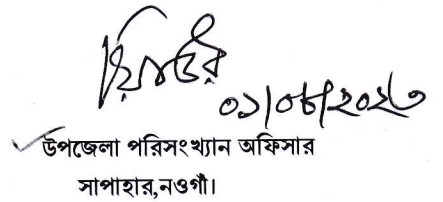 ০১/০৮/২০২৩
উপজেলা পরিসংখ্যান অফিসার
সাপাহার,নওগাঁ।